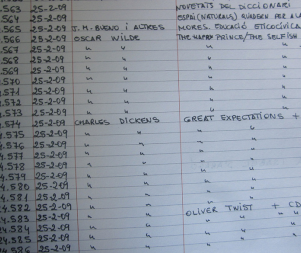 .563 25-2-09 NOVETATS DEL DICCIONARI
.564 25-2-09
.565 25-2-09 J.M. BUENO i ALTRES MORES. EDUCACIÓ ETICOCÍVICA
.566 25-2-09 OSCAR WILDE THE HAPPY PRINCE/THE SELFISH
.567 25-2-09 " " "
.568 25-2-09 " "
.569 25-2-09 " "
.570 25-2-09 " "
.571 25-2-09 " " "
.572 25-2-09 " " "
.573 25-2-09 " " "
.574 25-2-09 CHARLES DICKENS GREAT EXPECTATIONS +
.575 25-2-09 " " " "
.576 25-2-09 " " " "
4.577 25-2-09 " " " "
4.578 25-2-09 " " " "
4.579 25-2-09 " " " "
4.580 25-2-09 " " " "
4.581 25-2-09 " "
4.582 25-2-09 " " OLIVER TWIST + CD
4.583 25-2-09 " " " " "
4.584 25-2-09 " " " "
4.585 25-2-09 " " " "
4.586 25-2-09 " " "